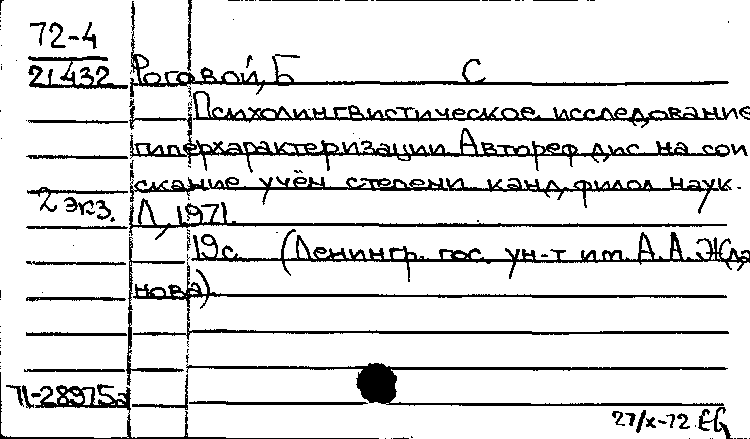 72-4
21432
Роговой, Б С
Психолингвистическое исследование
гиперхарактеризации Автореф дис на сои
скание учён степени канд филол наук.
2 экз.
Л, 1971.
19с. (Ленингр. гос. ун-т им. А. А. Жда
нова)
71-28975а
27/x-72